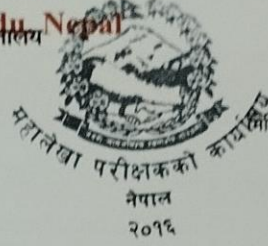 lu, Nepal
महालेखा परीक्षकको कार्यालय
नेपाल
२०१६